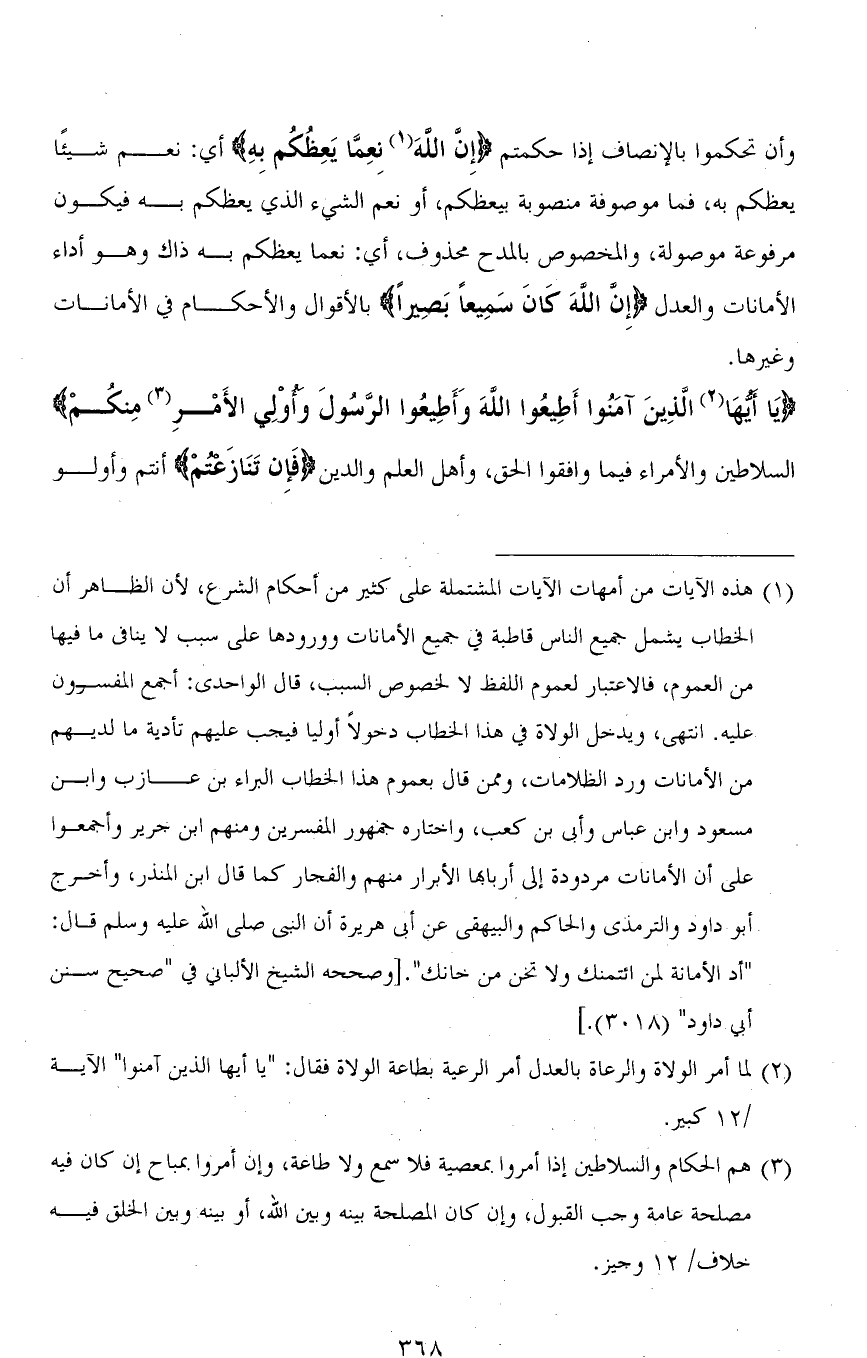 وأن تحكموا بالإنصاف إذا حكمتم ﴿إِنَّ اللَّهَ(١) نِعِمَّا يَعِظُكُم بِهِ﴾ أي: نعـــم شـــيئًا
يعظكم به، فما موصوفة منصوبة بيعظكم، أو نعم الشيء الذي يعظكم بـــه فيكـــون
مرفوعة موصولة، والمخصوص بالمدح محذوف، أي: نعما يعظكم بـــه ذاك وهـــو أداء
الأمانات والعدل ﴿إِنَّ اللَّهَ كَانَ سَمِيعاً بَصِيراً﴾ بالأقوال والأحكـــام في الأمانـــات
وغيرها.
﴿يَا أَيُّهَا(٢) الَّذِينَ آمَنُوا أَطِيعُوا اللَّهَ وَأَطِيعُوا الرَّسُولَ وَأُوْلِي الأَمْـــرِ(٣) مِنكُـــمْ﴾
السلاطين والأمراء فيما وافقوا الحق، وأهل العلم والدين ﴿فَإِن تَنَازَعْتُمْ﴾ أنتم وأولـــو
(١) هذه الآيات من أمهات الآيات المشتملة على كثير من أحكام الشرع، لأن الظـــاهر أن
الخطاب يشمل جميع الناس قاطبة في جميع الأمانات وورودها على سبب لا ينافى ما فيها
من العموم، فالاعتبار لعموم اللفظ لا لخصوص السبب، قال الواحدى: أجمع المفسـرون
عليه. انتهى، ويدخل الولاة في هذا الخطاب دخولاً أوليا فيجب عليهم تأدية ما لديـــهم
من الأمانات ورد الظلامات، وممن قال بعموم هذا الخطاب البراء بن عـــازب وابـــن
مسعود وابن عباس وأبى بن كعب، واختاره جمهور المفسرين ومنهم ابن جرير وأجمعـوا
على أن الأمانات مردودة إلى أربابها الأبرار منهم والفجار كما قال ابن المنذر، وأخـرج
أبو داود والترمذى والحاكم والبيهقى عن أبى هريرة أن النبى صلى الله عليه وسلم قـال:
"أد الأمانة لمن ائتمنك ولا تخن من خانك".[وصححه الشيخ الألباني في "صحيح سـنن
أبي داود" (٣٠١٨).]
(٢) لما أمر الولاة والرعاة بالعدل أمر الرعية بطاعة الولاة فقال: "يا أيها الذين آمنوا" الآيـــة
/١٢ كبير.
(٣) هم الحكام والسلاطين إذا أمروا بمعصية فلا سمع ولا طاعة، وإن أمروا بمباح إن كان فيه
مصلحة عامة وجب القبول، وإن كان المصلحة بينه وبين الله، أو بينه وبين الخلق فيـــه
خلاف/ ١٢ وجيز.
٣٦٨